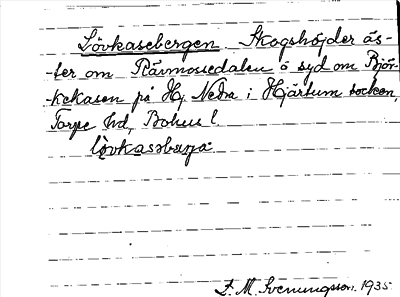 Lövkasebergen Skogshöjder ös-
ter om Rävmossedalen o syd om Björ-
kekasen på Hj. Nedra i Hjärtum socken,
Torpe hd, Bohus l.
lövkasəbærja
F. M. Svenungsson. 1935